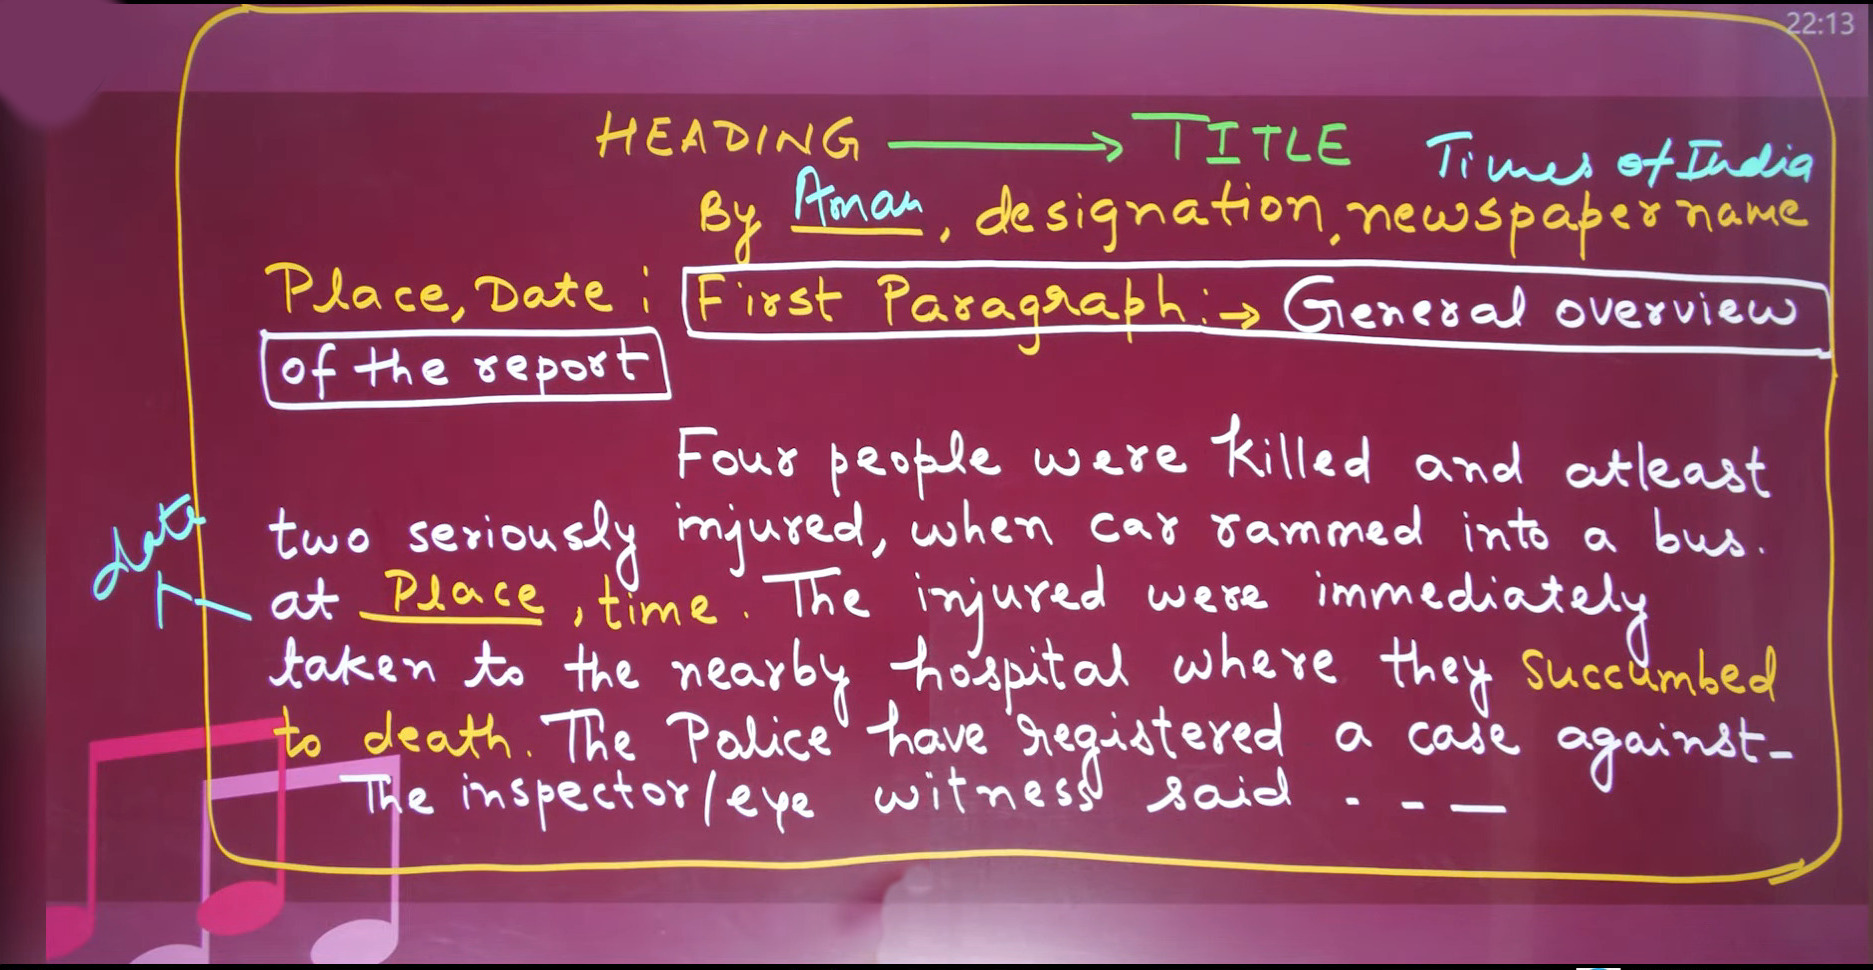 22:13
HEADING → TITLE Times of India
By Aman, designation, newspaper name
Place, Date : First Paragraph :→ General overview
of the report
Four people were killed and atleast
two seriously injured, when car rammed into a bus.
date
at Place, time. The injured were immediately
taken to the nearby hospital where they succumbed
to death. The Police have registered a case against-
The inspector/eye witness said - - —